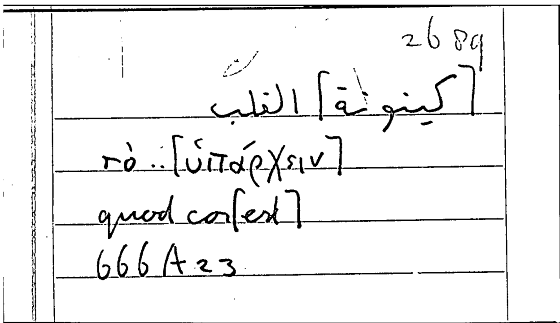 2689
[كينونة] القلب
τὸ .. [ὑπάρχειν]
quod cor [est]
666 A 23